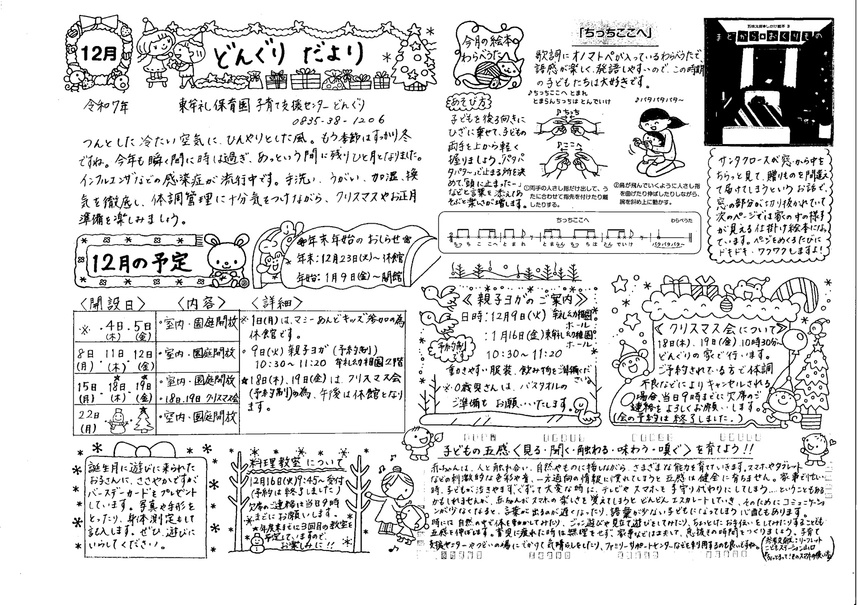 12月
どんぐり だより
令和7年 東牟礼保育園 子育て支援センター どんぐり
0835-38-1206
つんとした冷たい空気に、ひんやりとした風。もう季節はすっかり冬
ですね。今年も瞬く間に時は過ぎ、あっという間に残りひと月となりました。
インフルエンザなどの感染症が流行中です。手洗い、うがい、加湿、換
気を徹底し、体調管理に十分気をつけながら、クリスマスやお正月
準備を楽しみましょう。
今月の絵本
わらべうた
「ちっちここへ」
歌詞にオノマトペが入っているわらべうたで、
語感が楽しく、発語しやすいので、この時期
の子どもたちは大好きです。
あそび方
子どもを後ろ向きに
ひざに乗せて、子どもの
両手を上から軽く
握りましょう。「パタパ
タパタ〜」で止まる所を決
めて、「頭に止まったー」
などと言葉を添えて
あそぶと楽しさが増します。
♪ちっちここへ とまれ
とまらんちっちは とんでいけ
♪ちっち
♪ここへ
♪パタパタパタ〜
①両手の人さし指だけ出して、う
たに合わせて指先を付けたり離
したりする。
②鳥が飛んでいくように人さし指
を曲げたり伸ばしたりしながら、
腕を斜め上に動かす。
ちっちここへ
わらべうた
まどからおくりもの
サンタクロースが窓から中を
ちらっと見て、贈りものを間違え
て届けてしまうというお話で、
窓の部分がくり抜かれていて
次のページでは家の中の様子
が見える仕掛け絵本になっ
ています。ページをめくるたびに
ドキドキ・ワクワクしますよ!
12月の予定
年末年始のおしらせ
年末:12月23日(火)〜休館
年始:1月9日(金)〜開館
〈開設日〉 〈内容〉 〈詳細〉
※・4日・5日
(木)(金)
・室内・園庭開放
※1日(月)は、マミーあんどキッズ参加の為
休館です。
8日 11日 12日
(月)・(木)(金)
・室内・園庭開放
・9日(火)親子ヨガ(予約制)
10:30〜11:20 牟礼幼稚園2階
15日 18日 19日
(月)・(木)・(金)
・室内・園庭開放
★18日・19日 クリスマス会
★18日(木)、19日(金)は、クリスマス会
(予約制)の為、午後は休館となり
ます。
22日
(月)
・室内・園庭開放
《親子ヨガのご案内》
日時:12月9日(火)牟礼幼稚園
ホール
:1月16日(金)東牟礼保育園
ホール
10:30〜11:20
予約制です
動きやすい服装、飲み物を準備くだ
さい。
※0歳児さんは、バスタオルの
ご準備も お願いいたします。
《クリスマス会について》
18日(木)、19日(金)、10時30分〜
どんぐりの家で行います。
ご予約されている方で体調
不良などによりキャンセルされる
場合、当日9時までに欠席のご
連絡をよろしくお願いします。
(会の予約は終了しました。)
誕生月に遊びに来られた
お子さんに、ささやかですが
バースデーカードをプレゼント
しています。写真や手形を
とったり、身体測定をして
記入します。ぜひ、遊びに
いらしてください。
料理教室について
12月16日(火)9:45〜受付
(予約は終了しました)
欠席のご連絡は当日9時
までにお願いします。
来年度までに3回目の教室を
予定していますので、
お楽しみに!!
子どもの五感〈見る・聞く・触わる・味わう・嗅ぐ〉を育てよう!!
赤ちゃんは、人と触れ合い、自然やものに接しながら、さまざまな能力を育てていきます。スマホやタブレット
などの刺激的な色彩や音、一方通行の情報に慣れてしまうと五感は健全に育ちません。家事で忙しい
時、子どもが泣きやまず、ぐずって大変な時に、テレビやスマホを子守り代わりにしてしまう…ということもある
かもしれませんが、赤ちゃんがスマホの楽しさを覚えてしまうとどんどんエスカレートしていき、そのためにコミュニケーショ
ンが少なくなると、言葉が出るのが遅くなったり、語彙が少ない子どもになってしまう心配もあります。